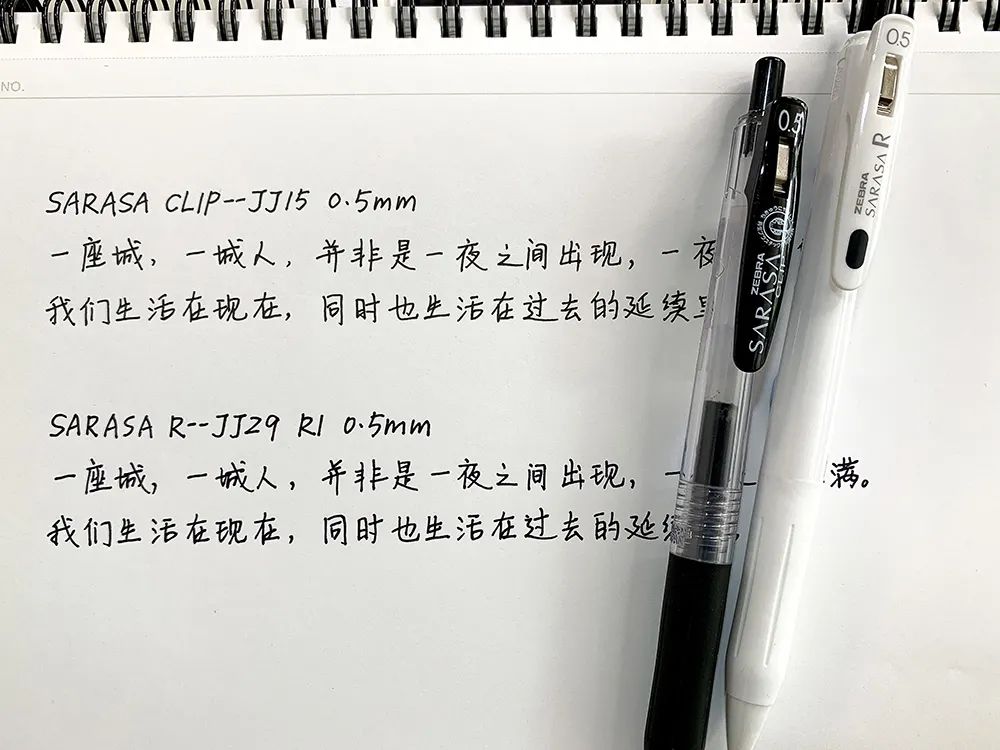 NO.
SARASA CLIP--JJ15 0.5mm
一座城，一城人，并非是一夜之间出现，一夜
我们生活在现在，同时也生活在过去的延续里
SARASA R--JJ29 R1 0.5mm
一座城，一城人，并非是一夜之间出现，一满。
我们生活在现在，同时也生活在过去的延续，
0.5
ZEBRA
SARASA
CLIP
0.5
ZEBRA
SARASA R